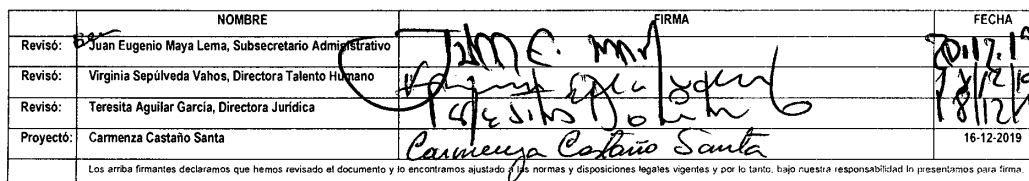 NOMBRE FIRMA FECHA
Revisó: Juan Eugenio Maya Lema, Subsecretario Administrativo
Revisó: Virginia Sepúlveda Vahos, Directora Talento Humano
Revisó: Teresita Aguilar García, Directora Jurídica
Proyectó: Carmenza Castaño Santa Carmenza Castaño Santa 16-12-2019
Los arriba firmantes declaramos que hemos revisado el documento y lo encontramos ajustado a las normas y disposiciones legales vigentes y por lo tanto, bajo nuestra responsabilidad lo presentamos para firma.